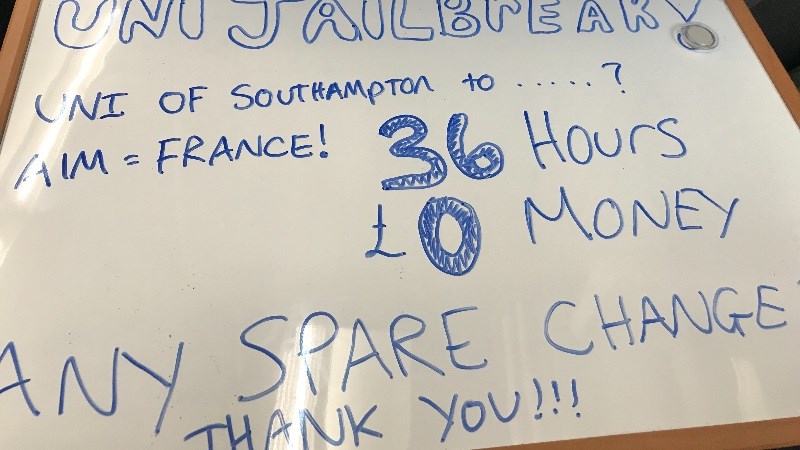 UNI JAILBREAK
UNI OF SOUTHAMPTON to .....?
AIM = FRANCE!
36 HOURS
£0 MONEY
ANY SPARE CHANGE
THANK YOU!!!